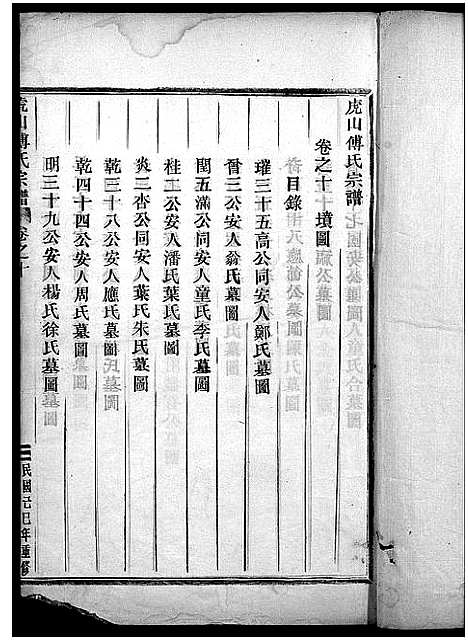 虎山傅氏宗譜
卷之十墳圖
目錄
璀三十五高公同安人鄭氏墓圖
晉二公安人翁氏墓圖
閏五滿公同安人童氏李氏墓圖
桂二公安人潘氏葉氏墓圖
炎三杏公同安人葉氏朱氏墓圖
乾三十八公安人應氏墓圖
乾四十四公安人周氏墓圖
明三十九公安人楊氏徐氏墓圖
虎山傅氏宗譜 卷之十 民國己巳年重修